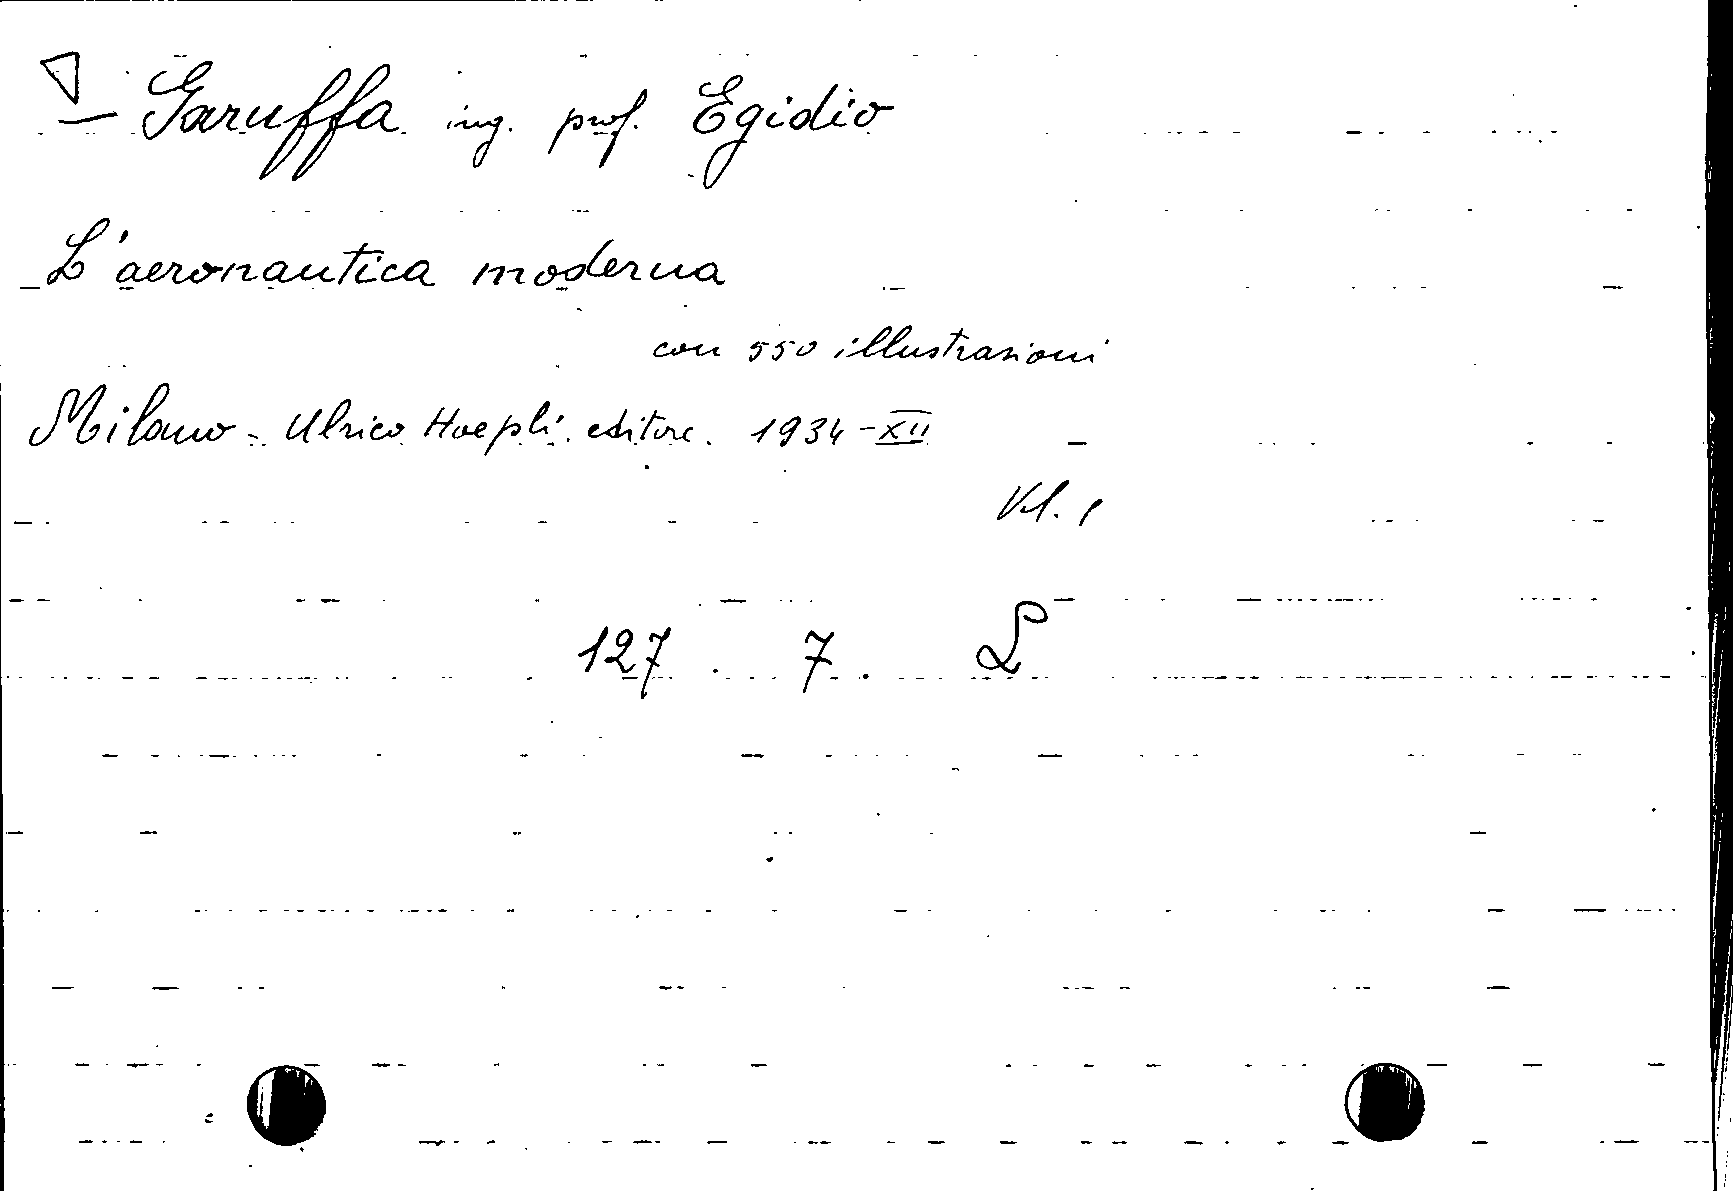 Garuffa ing. prof. Egidio
L'aeronautica moderna
con 550 illustrazioni
Milano - Ulrico Hoepli editore. 1934-XII
Vol. 1
127 . 7 . L